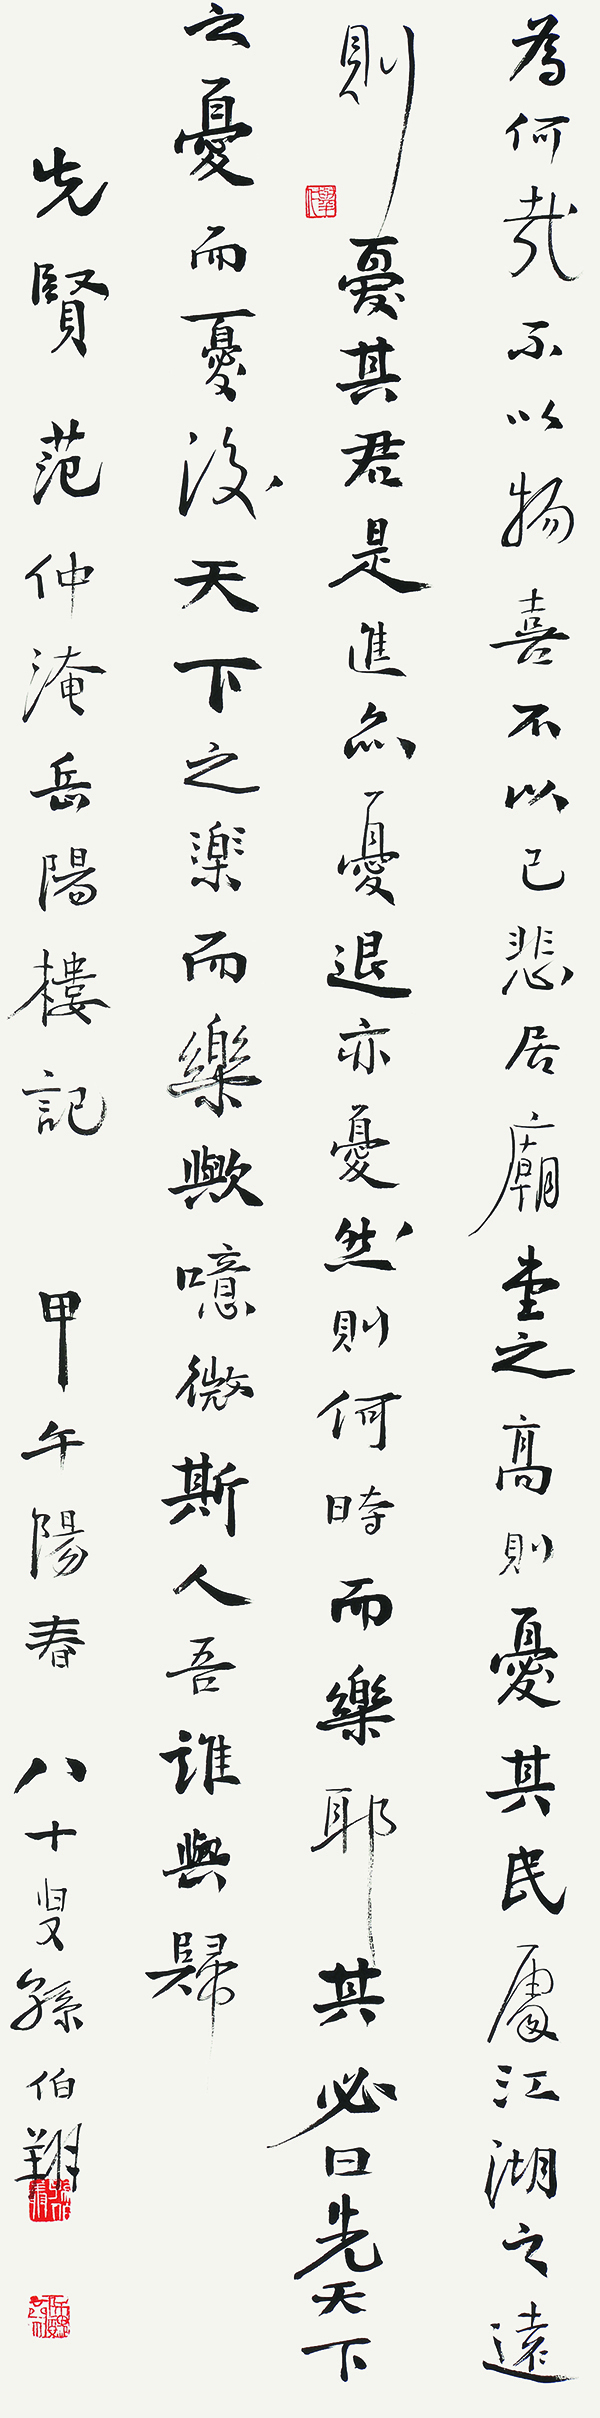 為何哉不以物喜不以己悲居廟堂之高則憂其民處江湖之遠
則憂其君是進亦憂退亦憂然則何時而樂耶其必曰先天下
之憂而憂後天下之樂而樂歟噫微斯人吾誰與歸
先賢范仲淹岳陽樓記 甲午陽春 八十叟孫伯翔